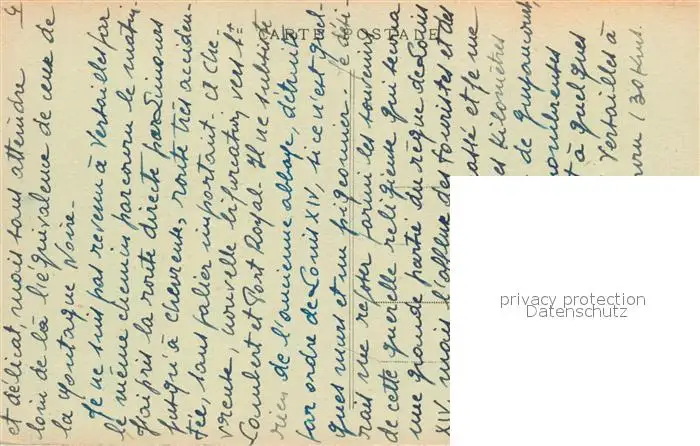 4
et délicat, mais sans atteindre
loin de là l'équivalence de ceux de
la Montagne Noire.
Je ne suis pas revenu à Versailles par
le même chemin parcouru le matin.
J'ai pris la route directe par Limours
jusqu'à Chevreuse, route très acciden-
tée, sans palier important. A Che-
vreuse, nouvelle bifurcation vers St
Lambert et Port Royal. Il ne subsiste
rien de l'ancienne abbaye, détruite
par ordre de Louis XIV, si ce n'est quel-
ques murs et un pigeonnier. Je dési-
rais me reposer parmi les souvenirs
de cette querelle religieuse qui
une grande partie du règne de Louis
XIV, mais l'affluence des touristes et des
et je me
es kilomètres
de Guyancourt,
nombreuses
t à quelques
Versailles à
(30 Kms.
CARTE POSTALE
privacy protection
Datenschutz